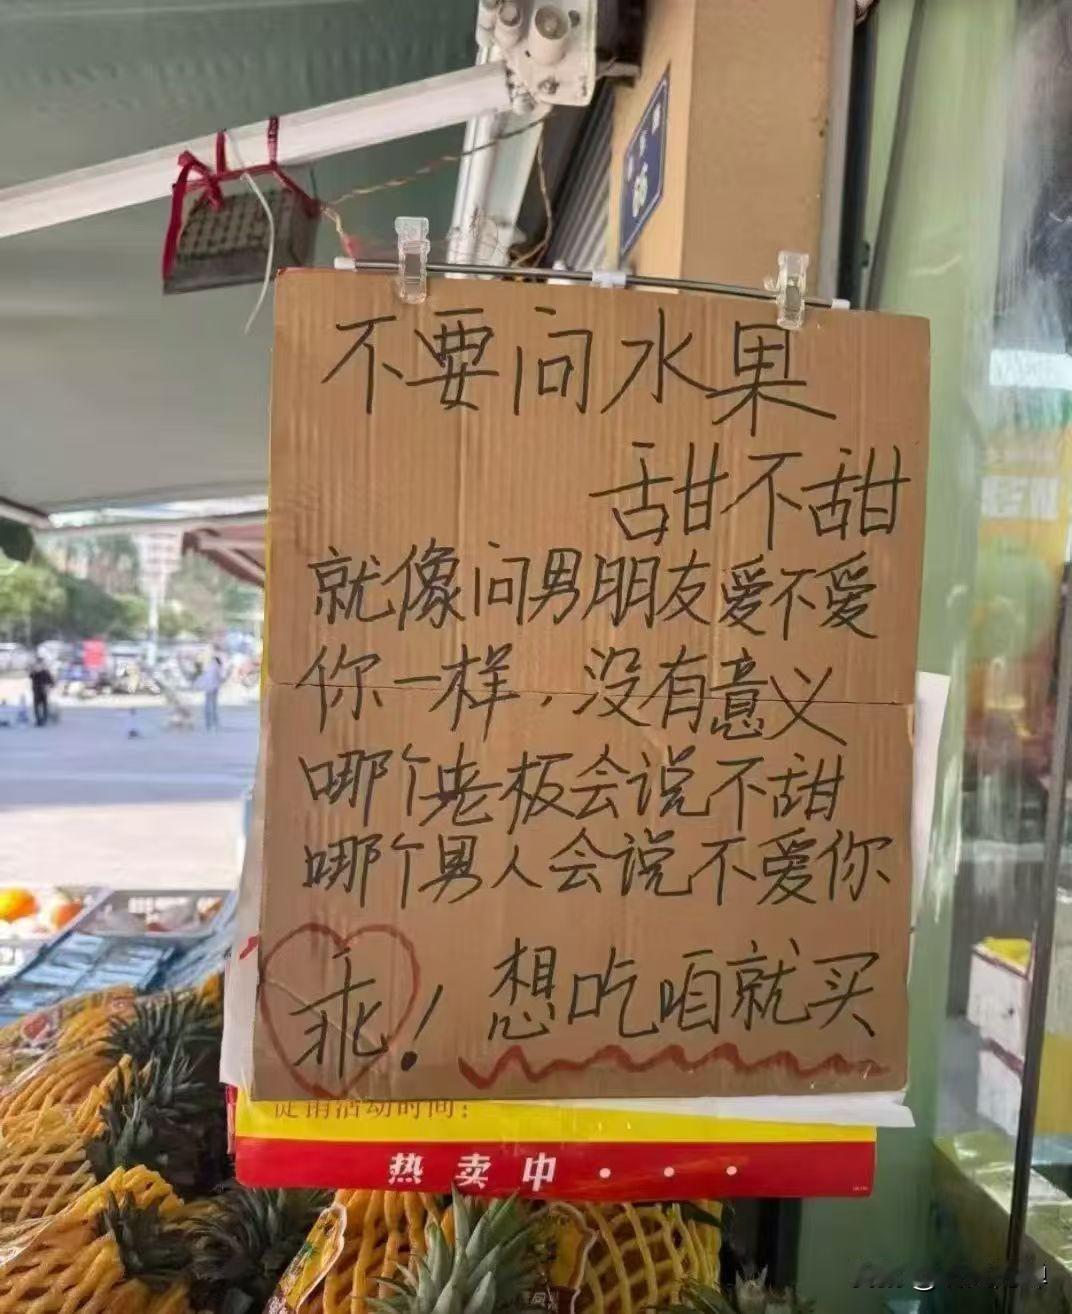 66
不要问水果
甜不甜
就像问男朋友爱不爱
你一样，没有意义
哪个老板会说不甜
哪个男人会说不爱你
乖！想吃咱就买
促销活动时间：
热卖中···